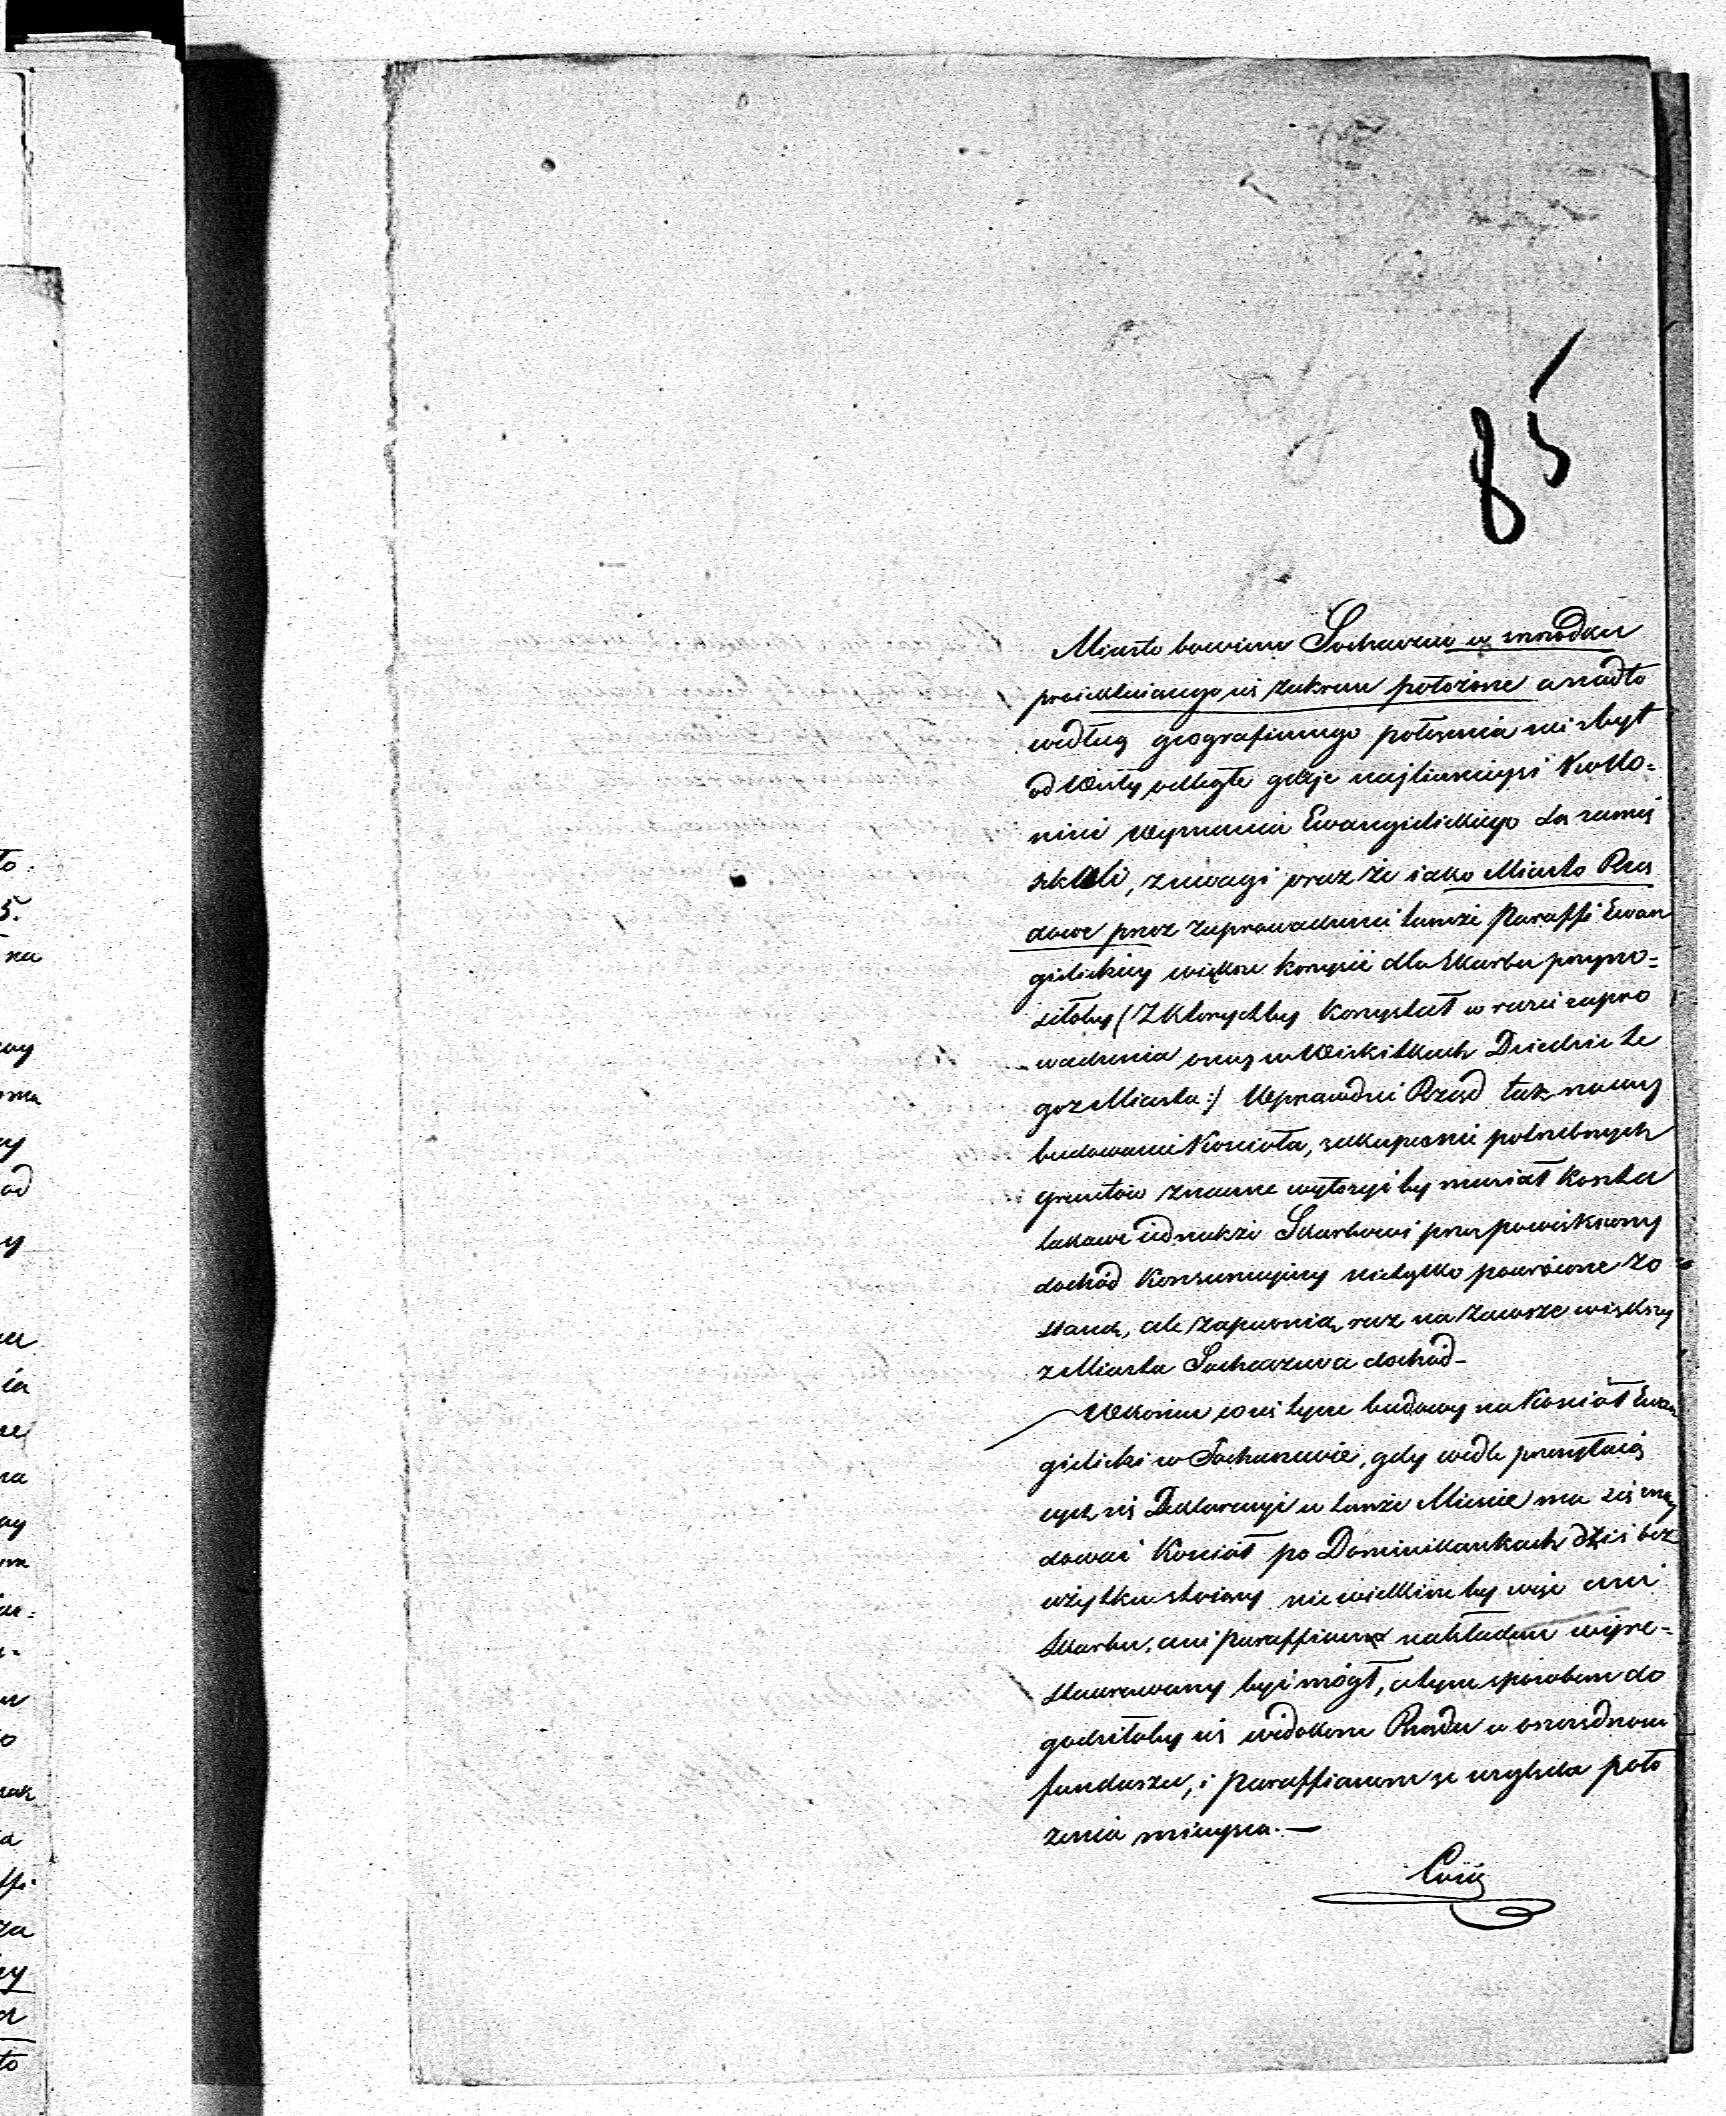 85
Miasto bowiem Sochaczew w srrodku
proiektuiącego się zakresu położone a nadto
według geograficznego położenia nie zbyt
od Wisły odległe gdzie najlicznieysi Kollo=
nisci wyznania Ewangielickiego Za zamię
szkali, z uwagi oraz że iako Miasto Rzą
dowe przez zaprowadzenie tamże Paraffi Ewan
gielickiey większe korzyści dla Skarbu przyno=
siłoby (Z ktorychby korzystał w razie zapro
wadzenia oney w Wiskitkach Dziedzic te
goz Miasta:) Wprawdzie Rząd tak na wy
budowanie Kościoła, zakupienie potrzebnych
gruntów znaczne wyłożyć by musiał koszta
takowe iednakże Skarbowi przez powiększony
dochód Konsumcyiny nietylko powrócone zo
staną, ale zapewnią raz na zawsze większy
z Miasta Sochaczewa dochód –
Wkońcu co się tycze budowy na Kościół Ewan
gielicki w Sochaczewie, gdy wedle
cych się Deklaracyi w tamże Mieście ma się znay
dować Kościół po Dominikankach dziś bez
użytku stoiący nie wielkim by więc ani
Skarbu, ani Paraffianow nakładem wyre=
staurowany być mógł, a tym sposobem do
godziłoby się widokom Rządu w
funduszu, i Paraffianom ze względu poło
żenia mieysca. —